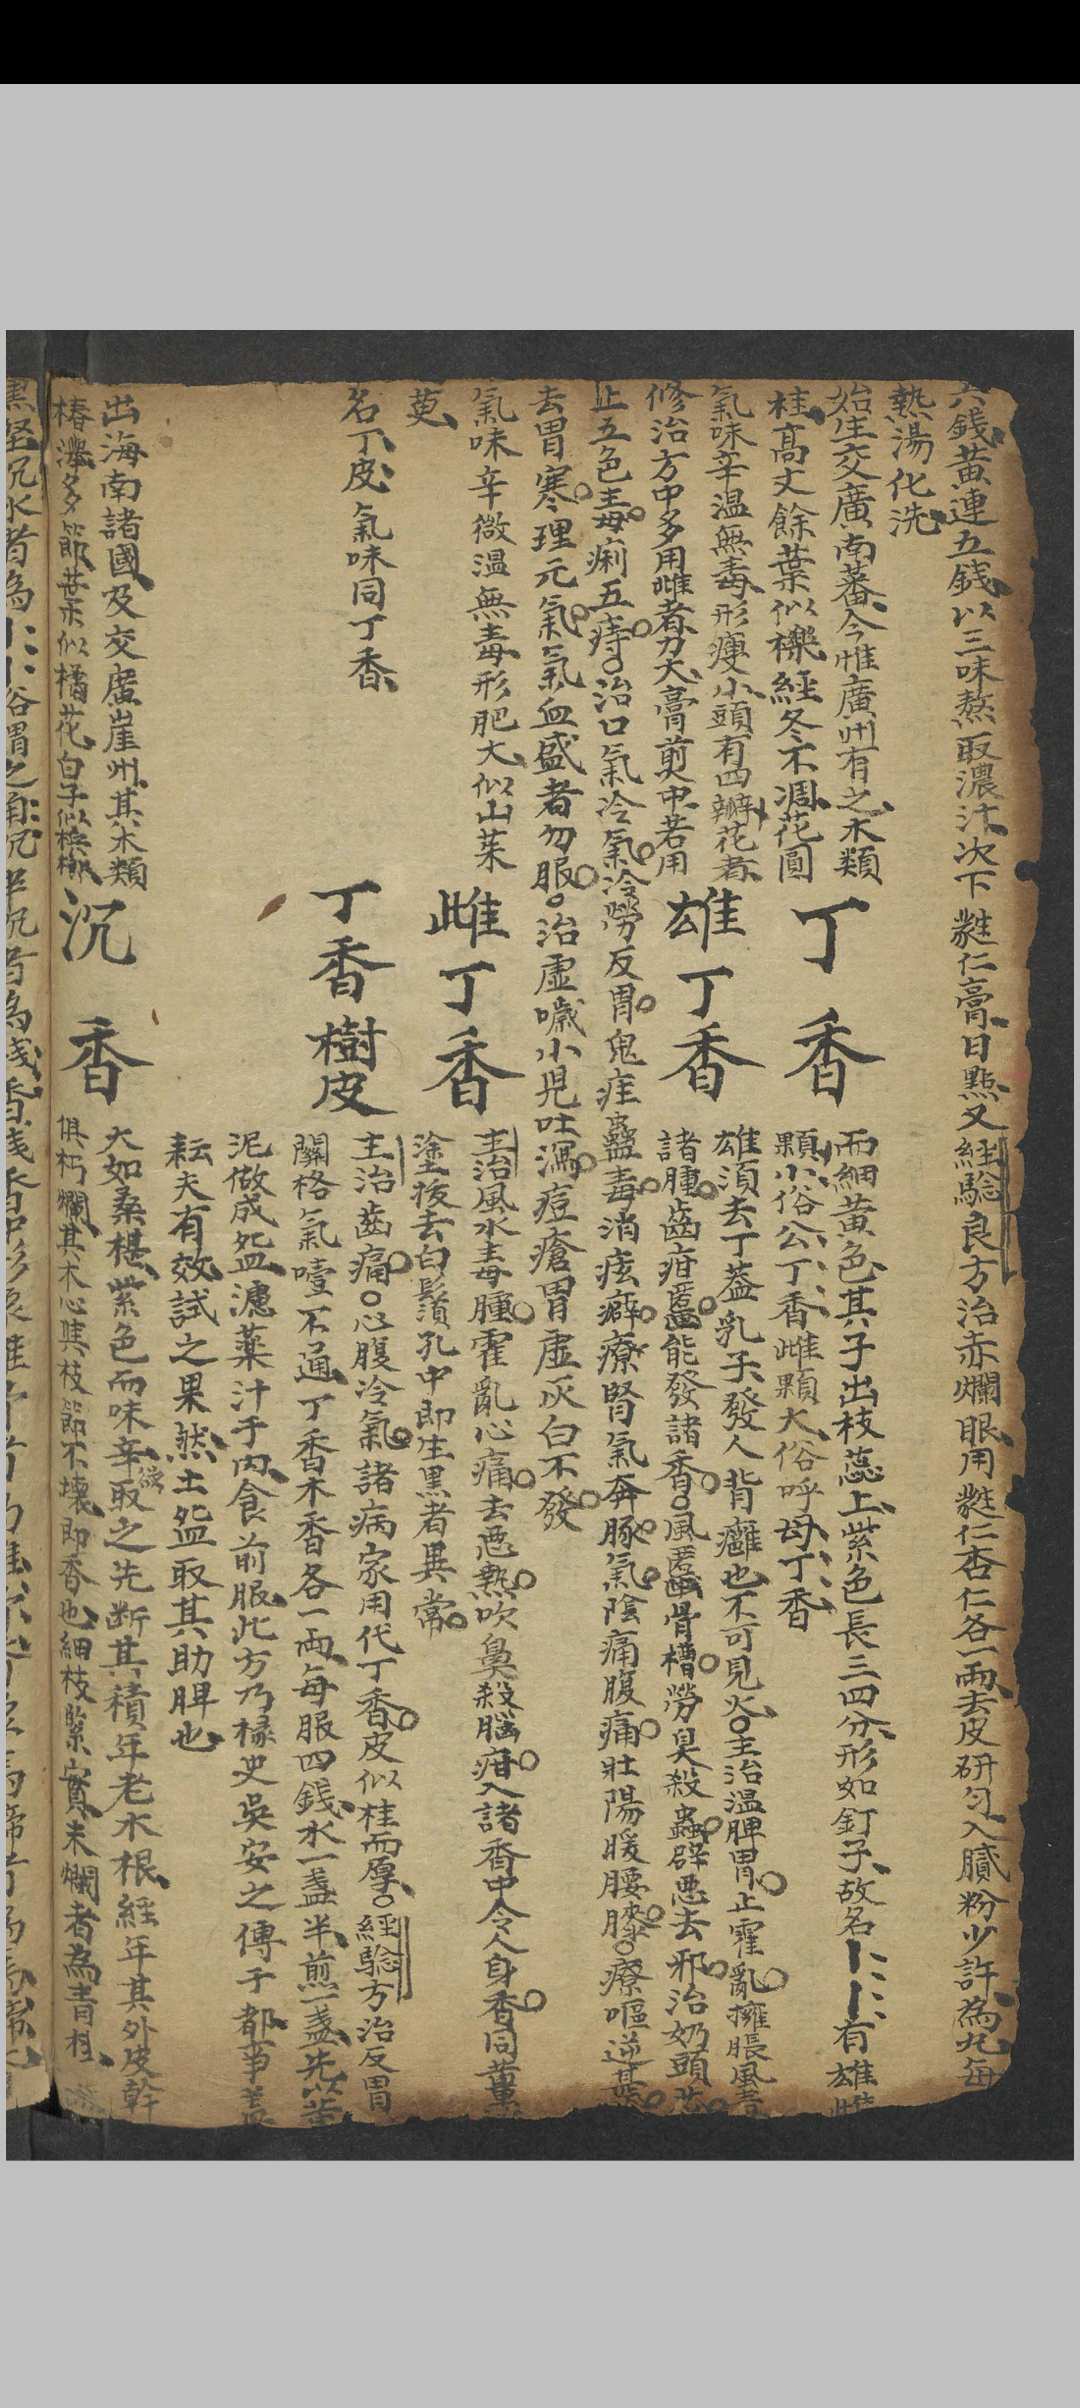 六錢黃連五錢以三味熬取濃汁次下蕤仁膏日點又經驗良方治赤爛眼用蕤仁杏仁各一兩去皮研勻入膩粉少許為丸每
熱湯化洗
丁香
始生交廣南蕃今惟廣州有之木類
桂高丈餘葉似櫟經冬不凋花圓
而細黃色其子出枝蕊上紫色長三四分形如釘子故名丁香有雄雌
顆小俗公丁香雌顆大俗呼母丁香
雄丁香
氣味辛溫無毒形瘦小頭有四瓣花者
修治方中多用雌者力大膏煎中若用
雄須去丁蓋乳子發人背癰也不可見火主治溫脾胃止霍亂擁脹風毒
諸腫齒疳䘌能發諸香風䘌骨槽勞臭殺蟲辟惡去邪治奶頭花
止五色毒痢五痔治口氣冷氣冷勞反胃鬼疰蠱毒消痃癖療腎氣奔豚氣陰痛腹痛壯陽暖腰膝療嘔逆甚
去胃寒理元氣氣血盛者勿服治虛噦小兒吐瀉痘瘡胃虛灰白不發
雌丁香
氣味辛微溫無毒形肥大似山茱
萸
主治風水毒腫霍亂心痛去惡熱吹鼻殺腦疳入諸香中令人身香同薑
塗拔去白鬚孔中即生黑者異常
丁香樹皮
名丁皮氣味同丁香
主治齒痛心腹冷氣諸病家用代丁香皮似桂而厚經驗方治反胃
關格氣噎不通丁香木香各一兩每服四錢水一盞半煎一盞先以黃
泥做成盌濾藥汁于內食前服此方乃掾史吳安之傳于都事蓋
耘夫有效試之果然土盌取其助脾也
沉香
出海南諸國及交廣崖州其木類
椿櫸多節葉似橘花白子似檳榔
大如桑椹紫色而味辛欲取之先斷其積年老木根經年其外皮幹
俱朽爛其木心與枝節不壞即香也細枝緊實未爛者為青桂
黑堅沉水者為沉香俗謂之角沉半沉者為棧香